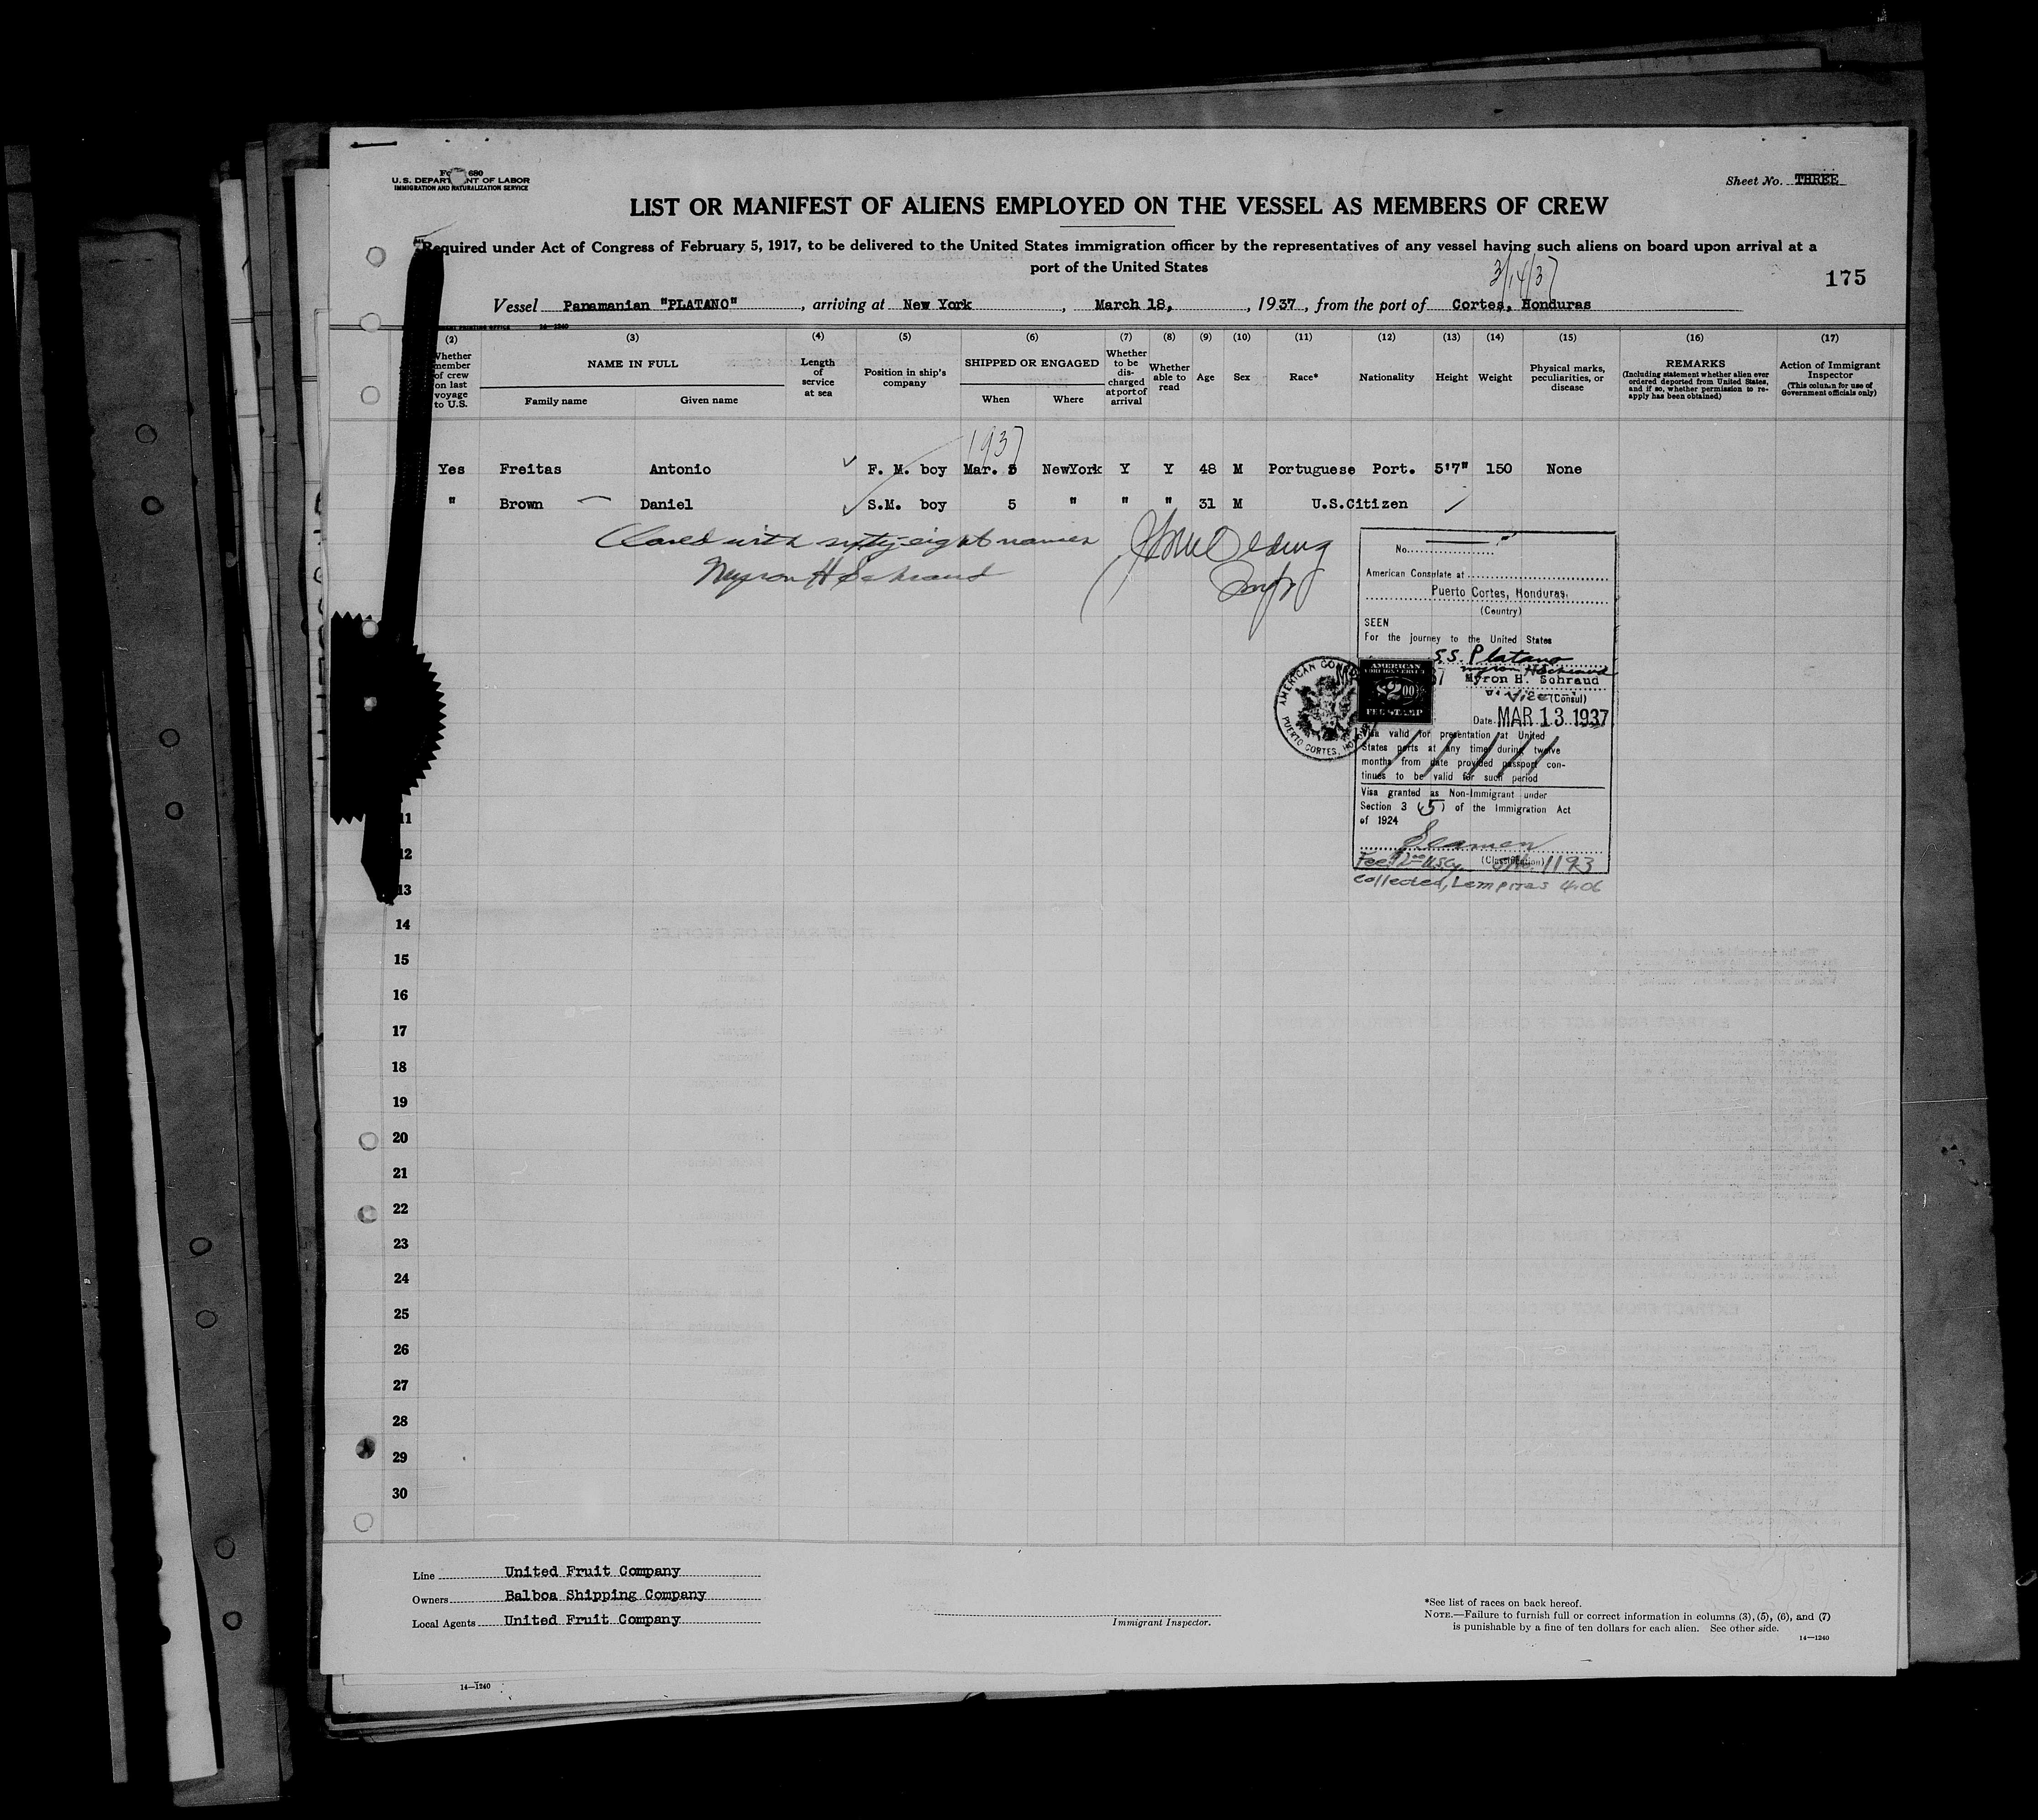 Fo 680
U.S. DEPART NT OF LABOR
IMMIGRATION AND NATURALIZATION SERVICE
Sheet No. THREE
LIST OR MANIFEST OF ALIENS EMPLOYED ON THE VESSEL AS MEMBERS OF CREW
Required under Act of Congress of February 5, 1917, to be delivered to the United States immigration officer by the representatives of any vessel having such aliens on board upon arrival at a
port of the United States
3/14/37
175
Vessel Panamanian "PLATANO", arriving at New York, March 18, 1937, from the port of Cortes, Honduras
PRINTING OFFICE 14—1240
(2) (3) (4) (5) (6) (7) (8) (9) (10) (11) (12) (13) (14) (15) (16) (17)
Whether member of crew on last voyage to U.S.
NAME IN FULL
Family name Given name
Length of service at sea
Position in ship's company
SHIPPED OR ENGAGED
When Where
Whether to be discharged at port of arrival
Whether able to read
Age
Sex
Race*
Nationality
Height
Weight
Physical marks, peculiarities, or disease
REMARKS
(Including statement whether alien ever ordered deported from United States, and if so, whether permission to reapply has been obtained)
Action of Immigrant Inspector
(This column for use of Government officials only)
1937
Yes Freitas Antonio F. M. boy Mar. 5 NewYork Y Y 48 M Portuguese Port. 5'7" 150 None
" Brown Daniel S.M. boy 5 " " " 31 M U.S.Citizen
Closed with sixty eight names
Myron H Schraud
No.
American Consulate at
Puerto Cortes, Honduras.
(Country)
SEEN
For the journey to the United States
S.S. Platano
Myron H Schraud
Myron H. Schraud
Vice (Consul)
Date MAR 13 1937
AMERICAN CONS
PUERTO CORTES, HON
AMERICAN
FOREIGN SERVICE
$2.00
FEE STAMP
Visa valid for presentation at United
States ports at any time during twelve
months from date provided passport con-
tinues to be valid for such period
Visa granted as Non-Immigrant under
Section 3 (5) of the Immigration Act
of 1924
Seamen
(Classification)
Fee: $2.00 1193
Collected, Lempiras 4.06
11
12
13
14
15
16
17
18
19
20
21
22
23
24
25
26
27
28
29
30
Line United Fruit Company
Owners Balboa Shipping Company
Local Agents United Fruit Company
Immigrant Inspector.
*See list of races on back hereof.
NOTE.—Failure to furnish full or correct information in columns (3), (5), (6), and (7)
is punishable by a fine of ten dollars for each alien. See other side.
14—1240
14—1240